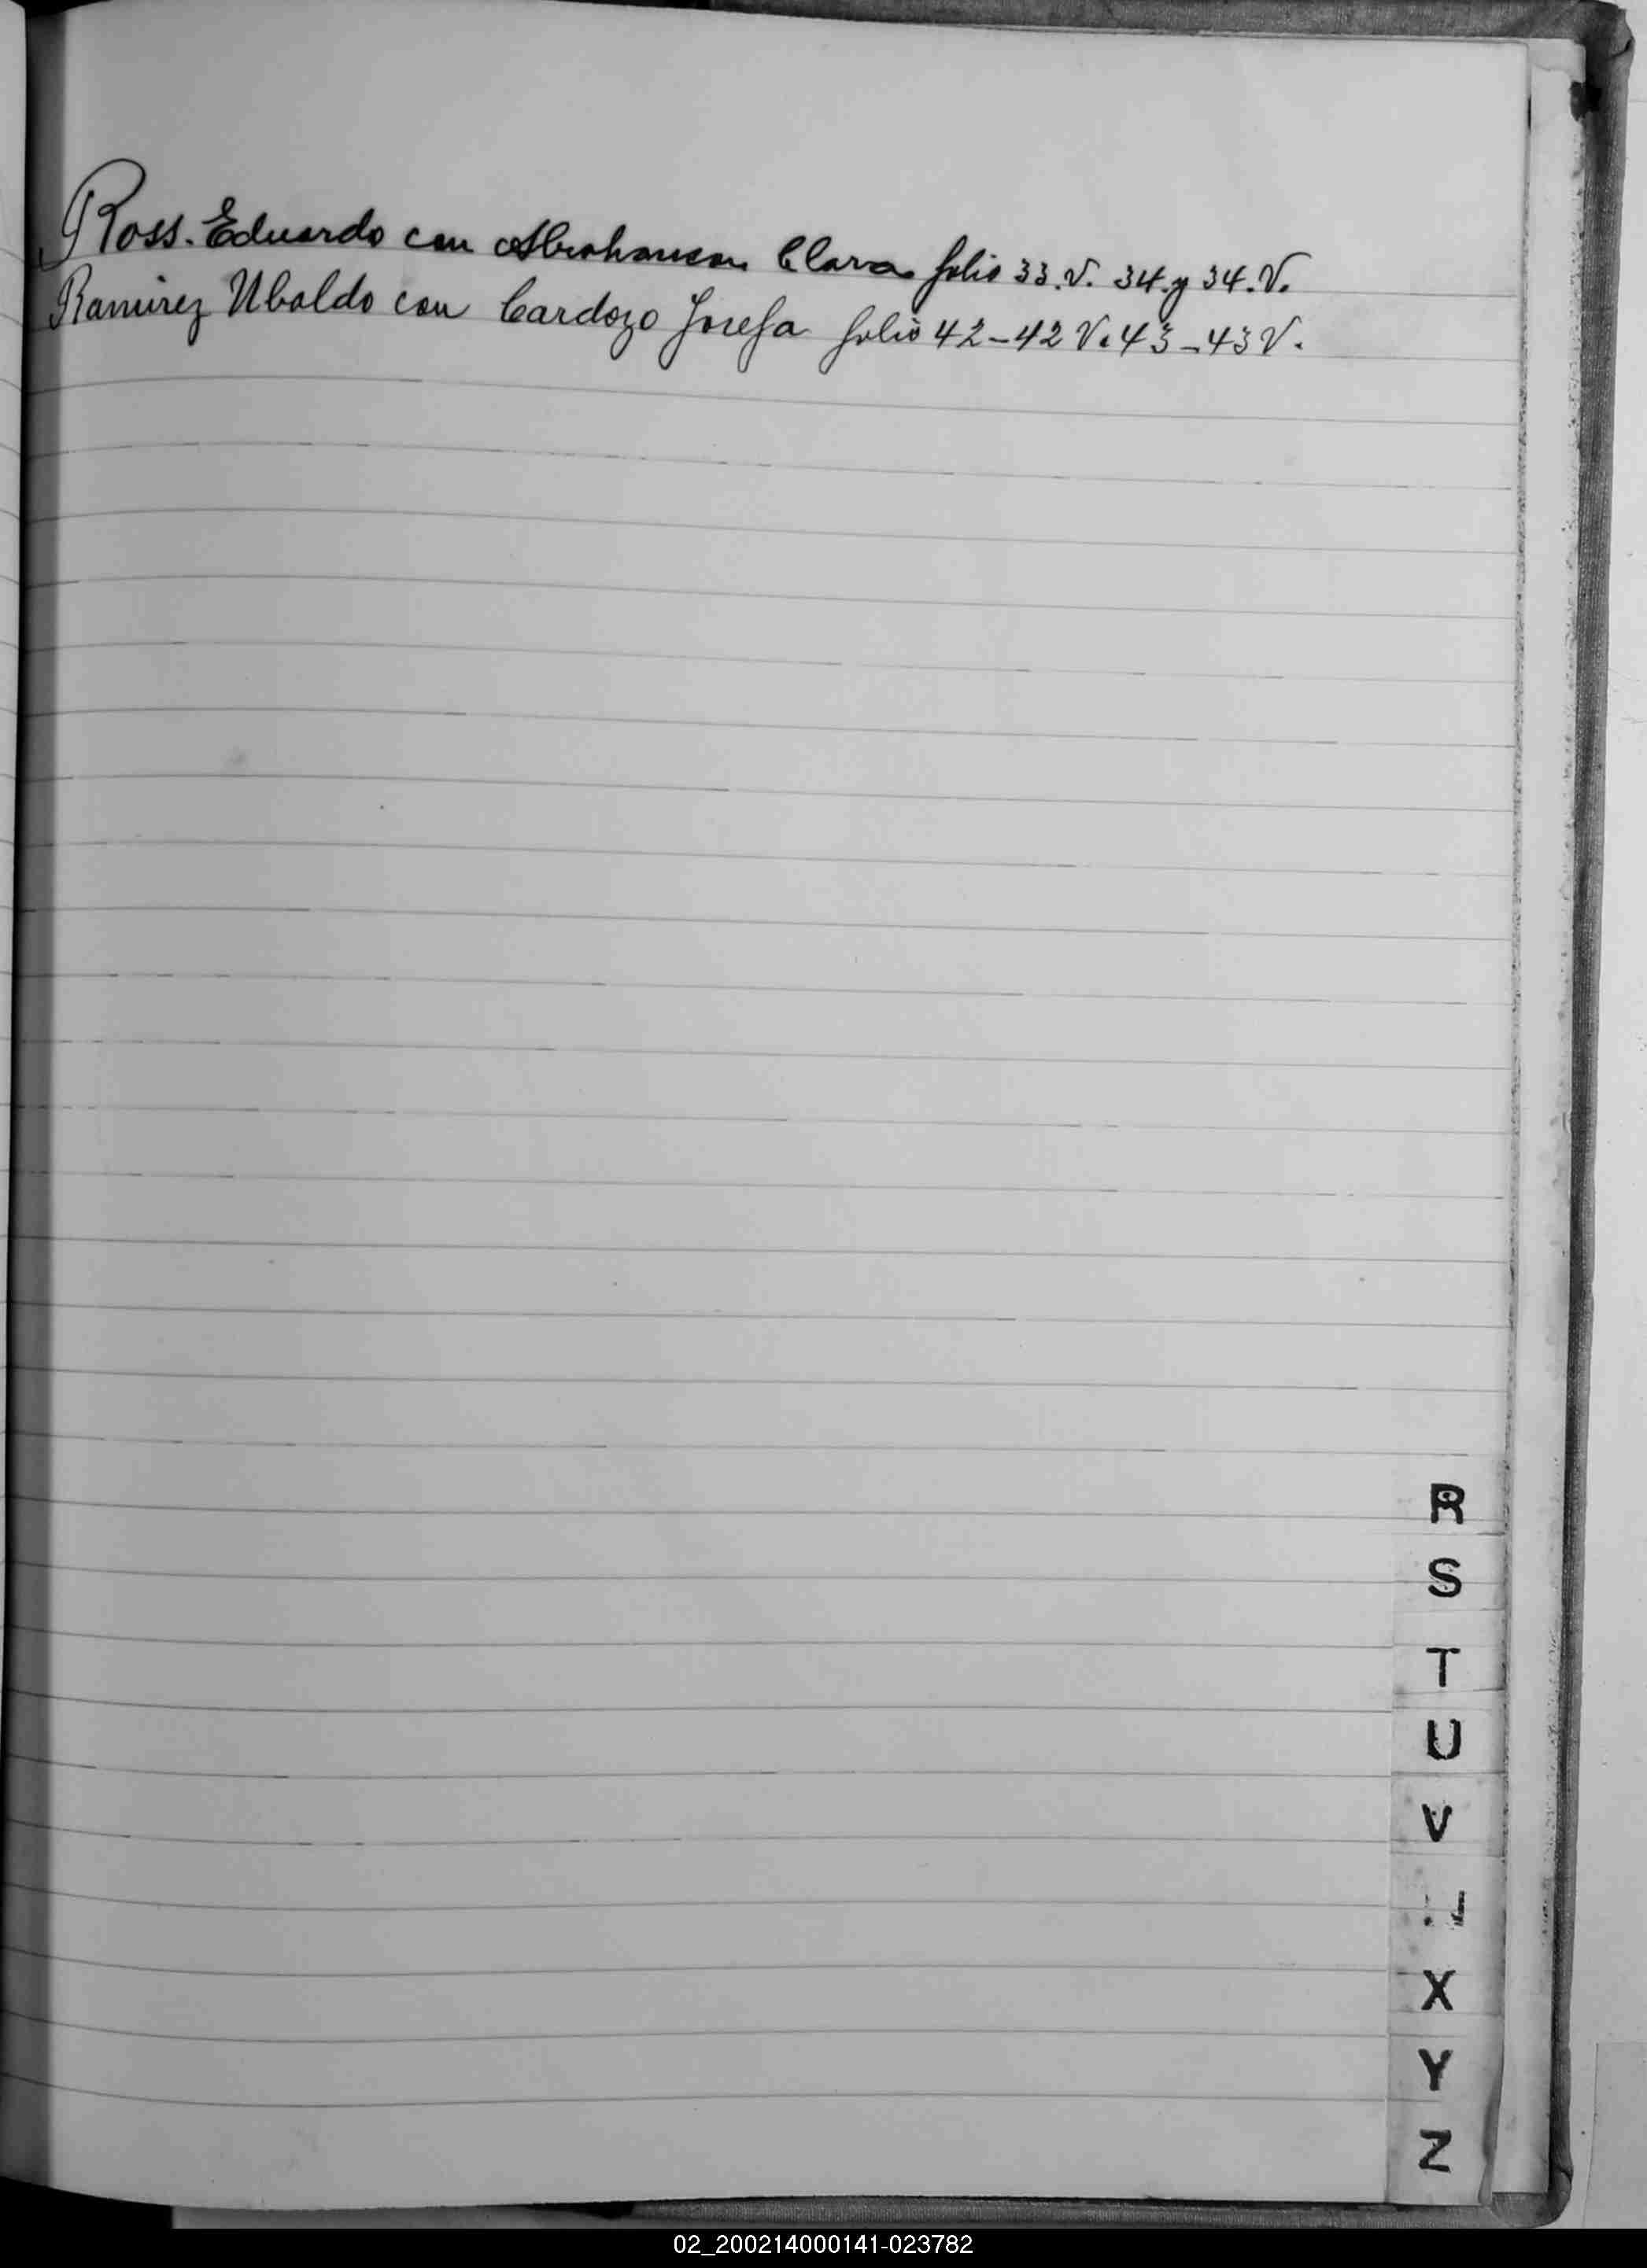 Ross. Eduardo con Abrahamson Clara folio 33.V. 34.y 34.V.
Ramirez Ubaldo con Cardozo Josefa folio 42-42 V. 43-43 V.
R
S
T
U
V
X
Y
Z
02_200214000141-023782